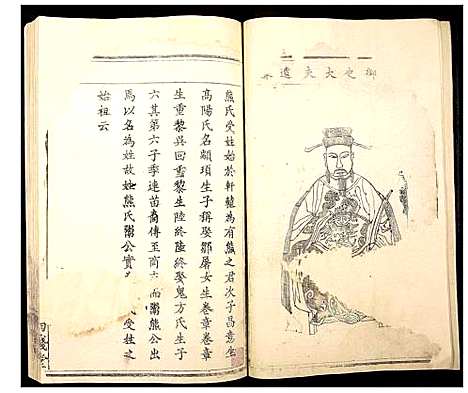 御史大夫遺
熊氏受姓始於軒轅為有熊之君次子昌意生
高陽氏名顓頊生子稱娶鄒屠女生卷章卷章
生重黎吳回重黎生陸終陸終娶鬼方氏生子
六其第六子季連苗裔傳至商六而鬻熊公出
焉以名為姓故始熊氏鬻公實 受姓之
始祖云